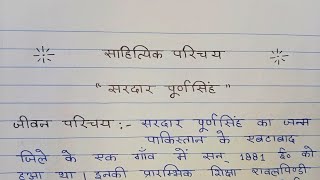 साहित्यिक परिचय
" सरदार पूर्णसिंह "
जीवन परिचय :- सरदार पूर्णसिंह का जन्म
पाकिस्तान के एबटाबाद
जिले के एक गाँव में सन् 1881 ई० को
हुआ था। इनकी प्रारम्भिक शिक्षा रावलपिण्डी